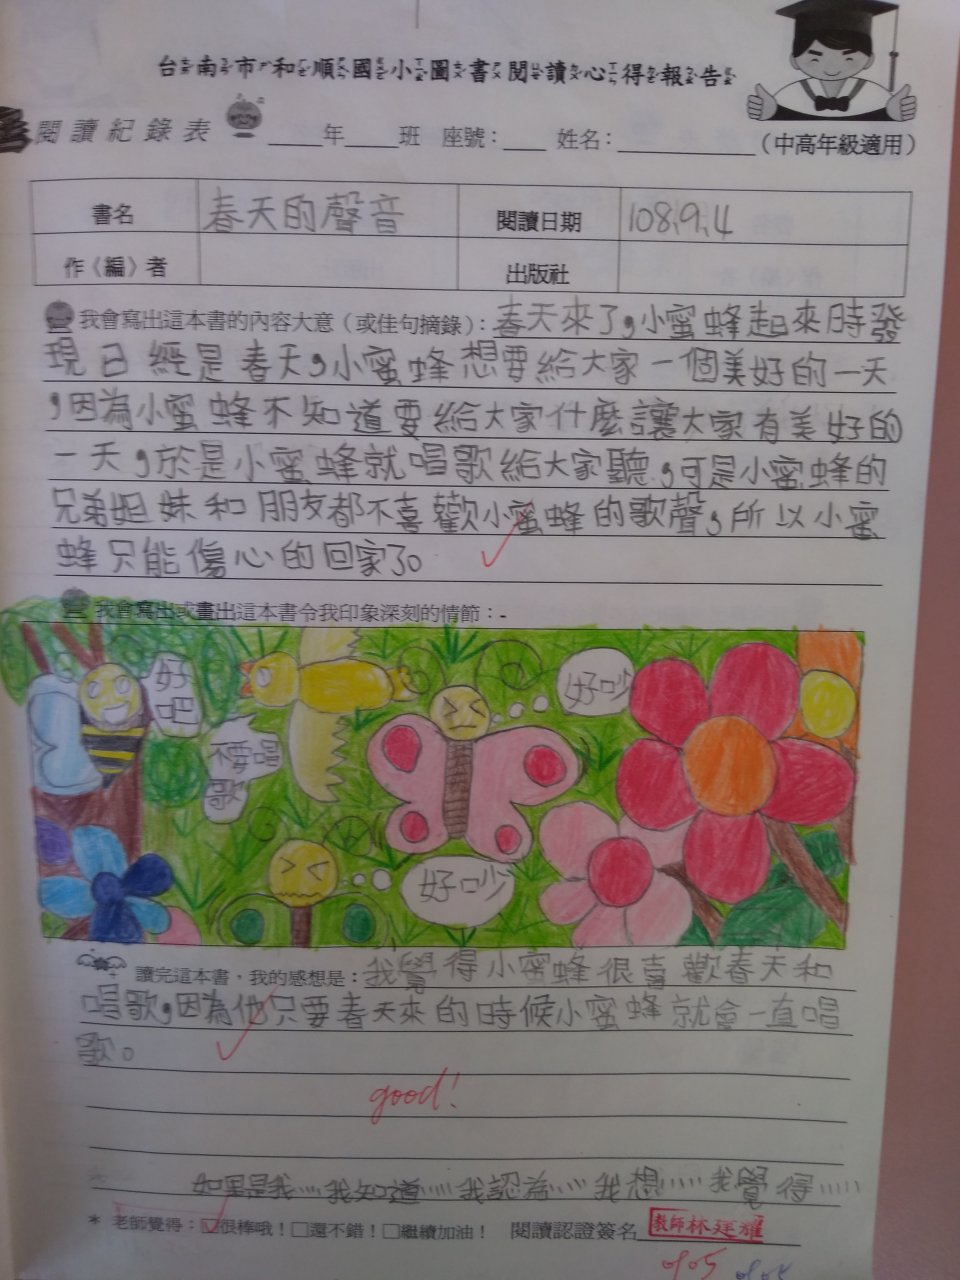 台南市和順國小圖書閱讀心得報告
閱讀紀錄表 ____年____班 座號：____ 姓名：____________（中高年級適用）
書名 春天的聲音 閱讀日期 108.9.4
作（編）者 出版社
我會寫出這本書的內容大意（或佳句摘錄）：春天來了，小蜜蜂起來時發
現已經是春天，小蜜蜂想要給大家一個美好的一天
，因為小蜜蜂不知道要給大家什麼讓大家有美好的
一天，於是小蜜蜂就唱歌給大家聽，可是小蜜蜂的
兄弟姐妹和朋友都不喜歡小蜜蜂的歌聲，所以小蜜
蜂只能傷心的回家了。
我會寫出或畫出這本書令我印象深刻的情節：-
好吧
不要唱歌
好吵
好吵
讀完這本書，我的感想是：我覺得小蜜蜂很喜歡春天和
唱歌，因為他只要春天來的時候小蜜蜂就會一直唱
歌。
good!
如果是我……我知道……我認為……我想……我覺得……
* 老師覺得：☑很棒哦！□還不錯！□繼續加油！ 閱讀認證簽名 教師林廷耀
0905